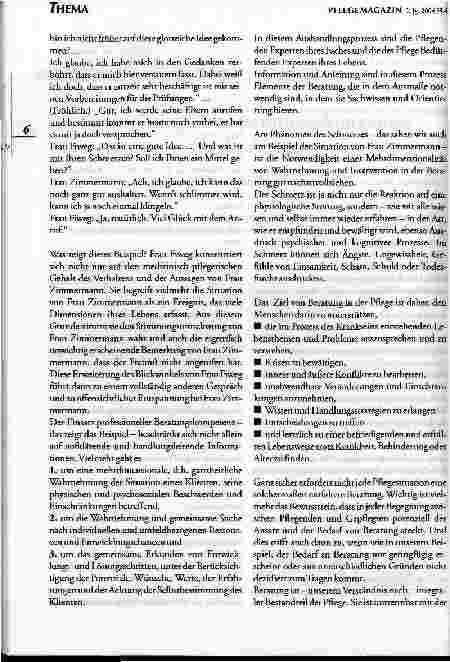 THEMA
PFLEGEMAGAZIN
6
bin ich nicht früher auf diese glorreiche Idee gekom-
men?
Ich glaube, ich habe mich in den Gedanken ver-
bohrt, dass er mich hier versauern lässt. Dabei weiß
ich doch, dass er zurzeit sehr beschäftigt ist mit sei-
nen Vorbereitungen für die Prüfungen." ...
(Fröhlich:) „Gut, ich werde seine Eltern anrufen
und bestimmt kommt er heute noch vorbei, er hat
damit ja doch versprochen."
Frau Eiweg: „Das ist eine gute Idee. ... Und was ist
mit Ihren Schmerzen? Soll ich Ihnen ein Mittel ge-
ben?"
Frau Zimmermann: „Ach, ich glaube, ich kann das
noch ganz gut aushalten. Wenn's schlimmer wird,
kann ich ja noch einmal klingeln."
Frau Eiweg: „Ja, natürlich. Viel Glück mit dem An-
ruf!"
Was zeigt dieses Beispiel? Frau Eiweg konzentriert
sich nicht nur auf den medizinisch-pflegerischen
Gehalt des Verhaltens und der Aussagen von Frau
Zimmermann. Sie begreift vielmehr die Situation
von Frau Zimmermann als ein Ereignis, das viele
Dimensionen ihres Lebens erfasst. Aus diesem
Grunde nimmt sie den Stimmungsumschwung von
Frau Zimmermann wahr und auch die eigentlich
unwichtig erscheinende Bemerkung von Frau Zim-
mermann, dass der Freund nicht angerufen hat.
Diese Erweiterung des Blickwinkels von Frau Eiweg
führt dann zu einem vollständig anderen Gespräch
und zu offensichtlicher Entspannung bei Frau Zim-
mermann.
Der Einsatz professioneller Beratungskompetenz –
das zeigt das Beispiel – beschränkt sich nicht allein
auf aufklärende und handlungsleitende Informa-
tionen. Vielmehr geht es
1. um eine mehrdimensionale, d.h. ganzheitliche
Wahrnehmung der Situation eines Klienten, seine
physischen und psychosozialen Beschwerden und
Einschränkungen betreffend,
2. um die Wahrnehmung und gemeinsame Suche
nach individuellen und umfeldbezogenen Ressour-
cen und Entwicklungschancen und
3. um das gemeinsame Erkunden von Entwick-
lungs- und Lösungsschritten, unter der Berücksich-
tigung der Potenziale, Wünsche, Werte, der Erfah-
rungen und der Achtung der Selbstbestimmung des
Klienten.
In diesem Aushandlungsprozess sind die Pflegen-
den Experten ihres Faches und die der Pflege Bedür-
fenden Experten ihres Lebens.
Information und Anleitung sind in diesem Prozess
Elemente der Beratung, die in dem Ausmaße not-
wendig sind, in dem sie Sachwissen und Orientie-
rung bieten.
Am Phänomen des Schmerzes – das sahen wir auch
am Beispiel der Situation von Frau Zimmermann –
ist die Notwendigkeit einer Mehrdimensionalität
von Wahrnehmung und Intervention in der Bera-
tung gut nachzuvollziehen.
Der Schmerz ist ja nicht nur die Reaktion auf eine
physiologische Störung, sondern – wie wir alle wis-
sen und selbst immer wieder erfahren – in der Art,
wie er empfunden und bewältigt wird, ebenso Aus-
druck psychischer und kognitiver Prozesse. Im
Schmerz können sich Ängste, Ungewissheit, Ge-
fühle von Einsamkeit, Scham, Schuld oder Todes-
furcht ausdrücken.
Das Ziel von Beratung in der Pflege ist daher, den
Menschen darin zu unterstützen,
■ die im Prozess des Krankseins entstehenden Le-
bensthemen und Probleme anzusprechen und zu
verstehen,
■ Krisen zu bewältigen,
■ innere und äußere Konflikte zu bearbeiten,
■ unabwendbare Veränderungen und Einschrän-
kungen anzunehmen,
■ Wissen und Handlungsstrategien zu erlangen
■ Entscheidungen zu treffen
■ und letztlich zu einer befriedigenden und erfüll-
ten Lebensweise trotz Krankheit, Behinderung oder
Alter zu finden.
Ganz sicher erfordert nicht jede Pflegesituation eine
solchermaßen entfaltete Beratung. Wichtig ist viel-
mehr das Bewusstsein, dass in jeder Begegnung zwi-
schen Pflegenden und Gepflegten potenziell der
Anlass und der Bedarf von Beratung steckt. Und
dies trifft auch dann zu, wenn wie in unserem Bei-
spiel, der Bedarf an Beratung von geringfügig er-
scheint oder aus unterschiedlichen Gründen nicht
deziert zum Tragen kommt.
Beratung ist – unserem Verständnis nach – integra-
ler Bestandteil der Pflege. Sie ist untrennbar mit der